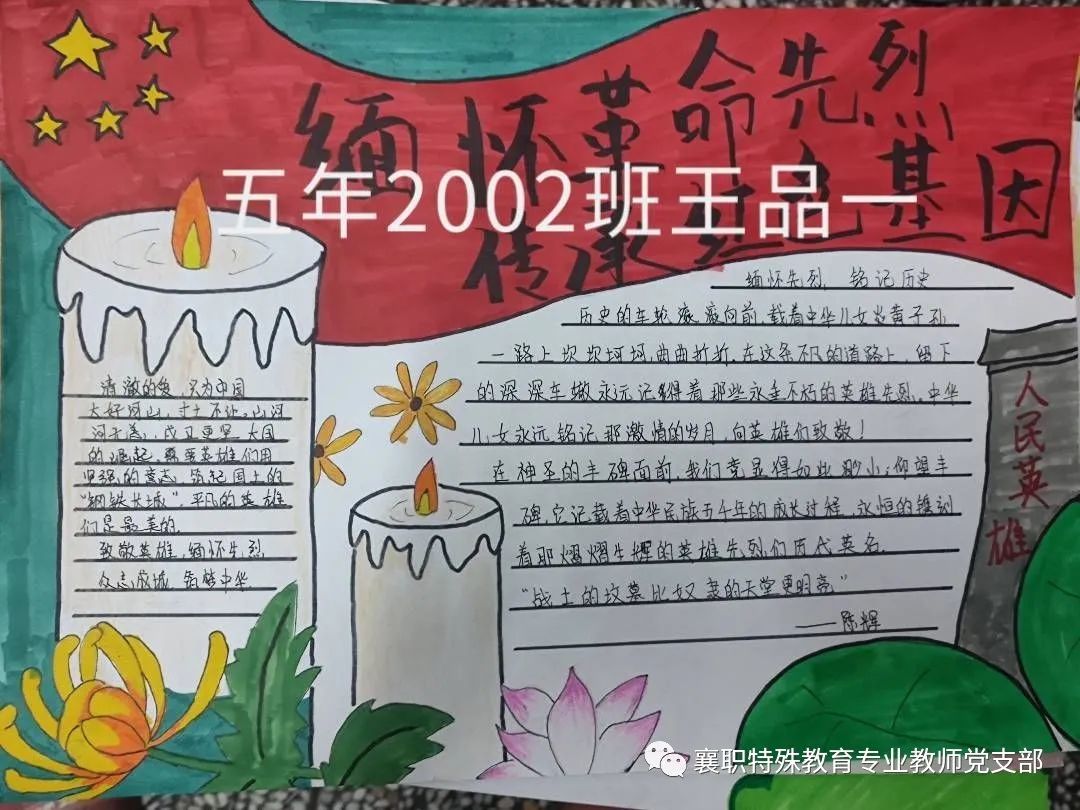 缅怀革命先烈
五年2002班王品一
传承红色基因
缅怀先烈,铭记历史
历史的车轮滚滚向前,载着中华儿女炎黄子孙
一路上坎坎坷坷,曲曲折折,在这条不凡的道路上,留下
的深深车辙永远记得着那些永垂不朽的英雄先烈。中华
儿女永远铭记那激情的岁月,向英雄们致敬!
在神圣的丰碑面前,我们竟显得如此渺小;仰望丰
碑,它记载着中华民族五千年的成长过程,永恒的镌刻
着那熠熠生辉的英雄先烈们历代英名.
“战士的坟墓比奴隶的天堂更明亮”
——陈辉
清澈的爱,只为中国
大好河山,寸土不让,山河
河无恙,戍卫更坚 大国
的崛起,需要英雄们用
坚强的意志 筑起国土的
“钢铁长城”平凡的英雄
们是最美的.
致敬英雄,缅怀先烈
众志成城 铸梦中华
人民英雄
襄职特殊教育专业教师党支部